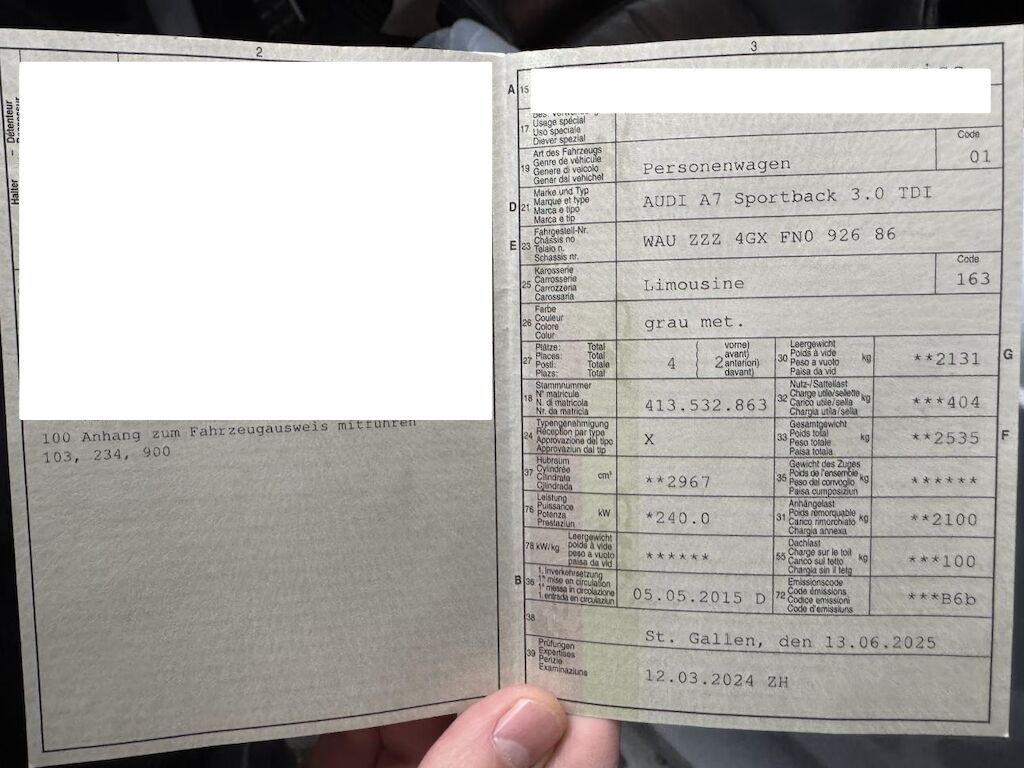 2
Halter - Détenteur
100 Anhang zum Fahrzeugausweis mitführen
103, 234, 900
3
A 15
17
Usage spécial
Uso speciale
Diever spezial
19 Art des Fahrzeugs
Genre de véhicule
Genere di veicolo
Gener dal vehichel
Personenwagen
Code
01
D 21 Marke und Typ
Marque et type
Marca e tipo
Marca e tip
AUDI A7 Sportback 3.0 TDI
E 23 Fahrgestell-Nr.
Châssis no
Telaio n.
Schassis nr.
WAU ZZZ 4GX FN0 926 86
25 Karosserie
Carrosserie
Carrozzeria
Carossaria
Limousine
Code
163
26 Farbe
Couleur
Colore
Colur
grau met.
27 Plätze: Total
Places: Total
Posti: Totale
Plazs: Total
4
2
vorne)
avant)
anteriori)
davant)
30 Leergewicht
Poids à vide
Peso a vuoto
Paisa da vid
kg
**2131
G
18 Stammnummer
N° matricule
N. di matricola
Nr. da matricla
413.532.863
32 Nutz-/Sattellast
Charge utile/sellette
Carico utile/sella
Chargia utila/sella
kg
***404
24 Typengenehmigung
Réception par type
Approvazione del tipo
Approvaziun dal tip
X
33 Gesamtgewicht
Poids total
Peso totale
Paisa totala
kg
**2535
F
37 Hubraum
Cylindrée
Cilindrata
Cilindrada
cm³
**2967
35 Gewicht des Zuges
Poids de l'ensemble
Peso del convoglio
Paisa cumposiziun
kg
******
76 Leistung
Puissance
Potenza
Prestaziun
kW
*240.0
31 Anhängelast
Poids remorquable
Carico rimorchiato
Chargia annexa
kg
**2100
78 kW/kg
Leergewicht
poids à vide
peso a vuoto
paisa da vid
******
55 Dachlast
Charge sur le toit
Carico sul tetto
Chargia sin il tetg
kg
***100
B 36 1. Inverkehrsetzung
1re mise en circulation
1a messa in circolazione
1. entrada en circulaziun
05.05.2015 D
72 Emissionscode
Code émissions
Codice emissioni
Code d'emissiuns
***B6b
38
St. Gallen, den 13.06.2025
39 Prüfungen
Expertises
Perizie
Examinaziuns
12.03.2024 ZH